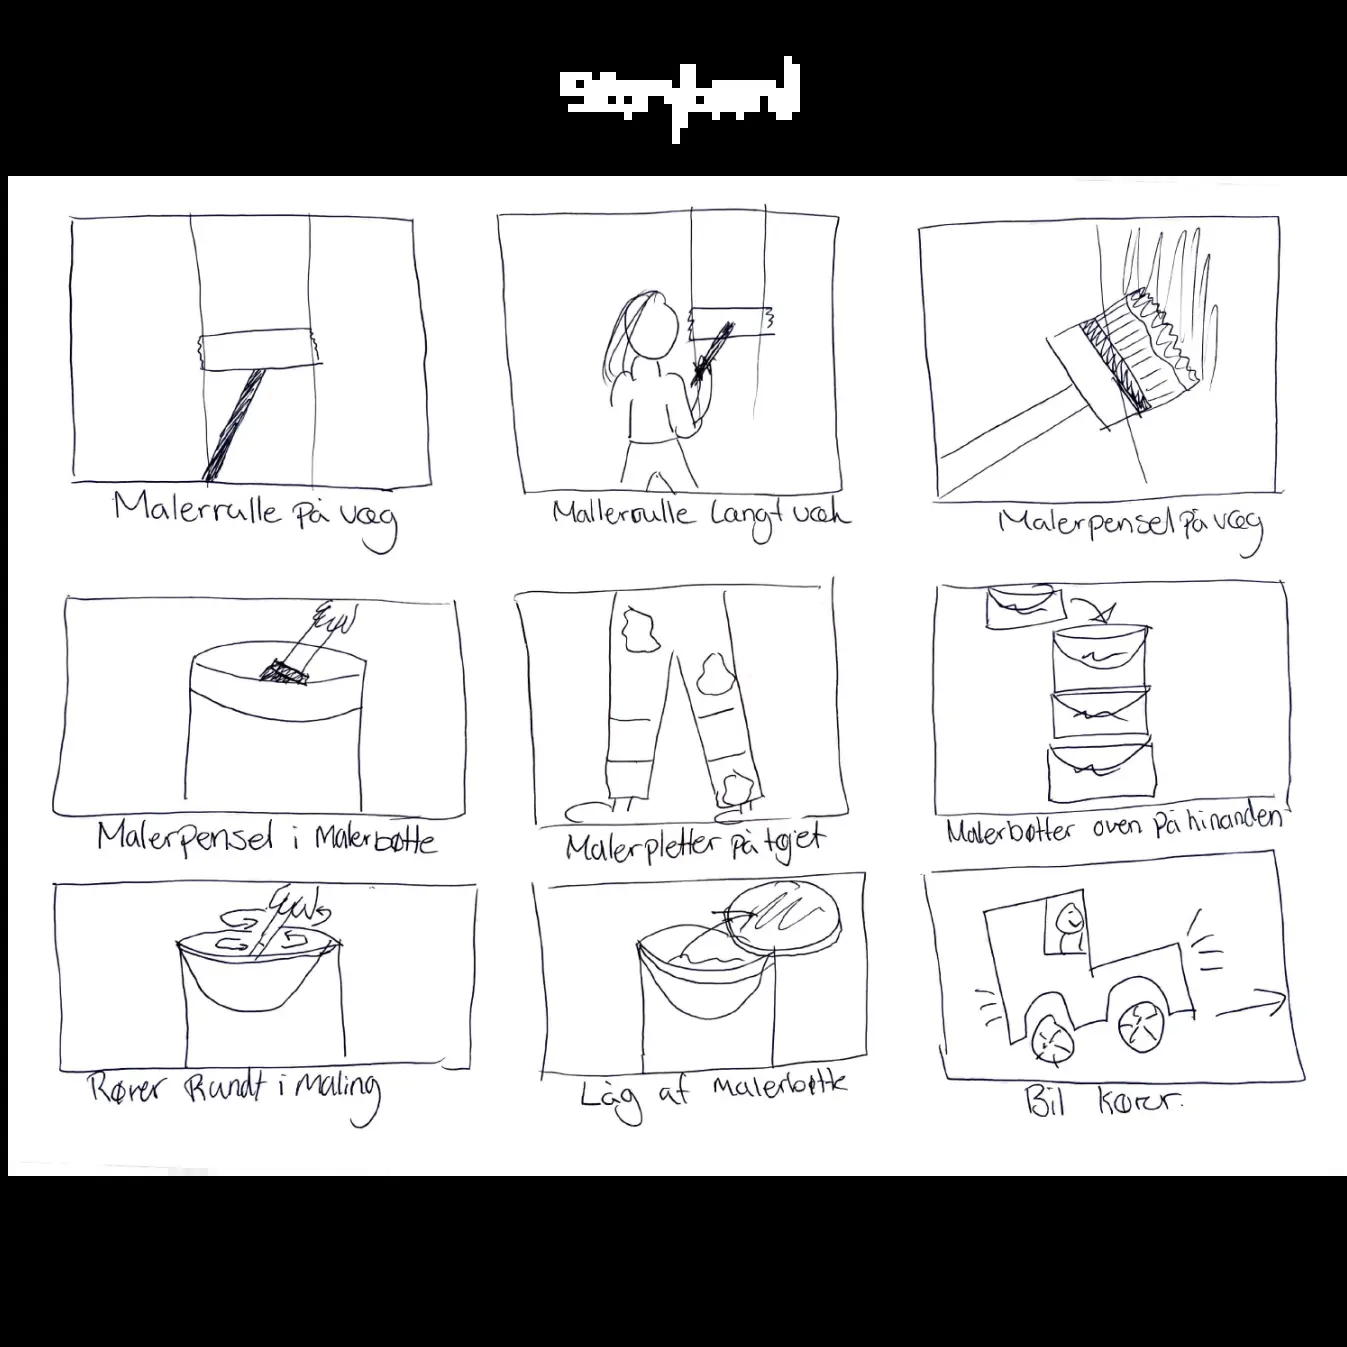 Storyboard
Malerrulle på væg
Mallerrulle Langt væk
Malerpensel på væg
Malerpensel i Malerbøtte
Malerpletter på tøjet
Malerbøtter oven på hinanden
Rører Rundt i Maling
Låg af Malerbøtte
Bil Kører.